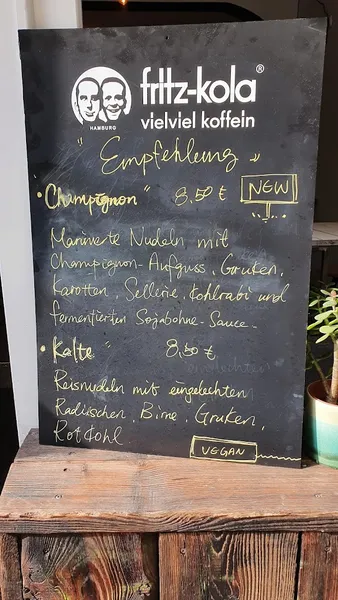 fritz-kola®
HAMBURG
vielviel koffein
"Empfehlung"
• Champignon" 8,50 € NEW
Marinierte Nudeln mit
Champignon-Aufguss, Gruken,
Karotten, Sellerie, Kohlrabi und
fermentierten Sojabohne-Sauce.
• Kalte" 8,50 €
Reisnudeln mit eingelechten
Radischen, Birne, Gruken,
Rotkohl
VEGAN